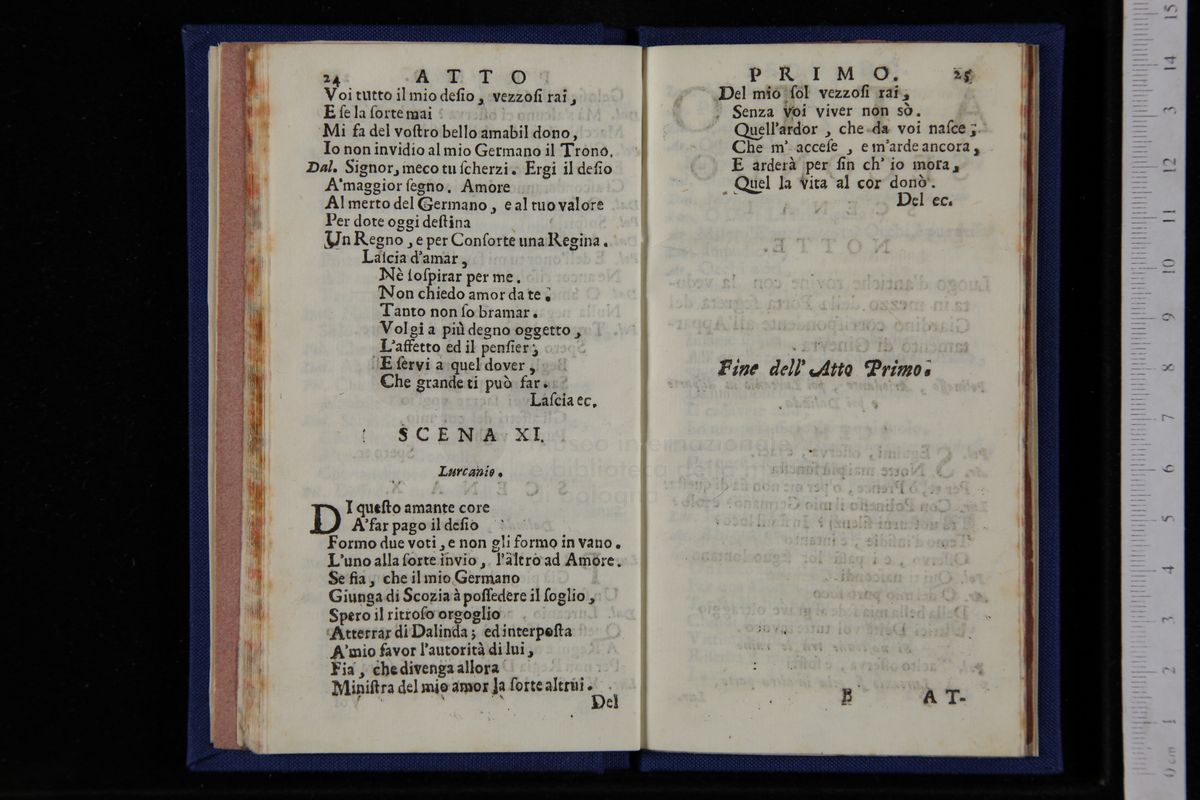 24 ATTO
Voi tutto il mio deſio, vezzoſi rai,
E ſe la ſorte mai
Mi fa del voſtro bello amabil dono,
Io non invidio al mio Germano il Trono.
Dal. Signor, meco tu ſcherzi. Ergi il deſio
A'maggior ſegno. Amore
Al merto del Germano, e al tuo valore
Per dote oggi deſtina
Un Regno, e per Conſorte una Regina.
Laſcia d'amar,
Nè ſoſpirar per me.
Non chiedo amor da te:
Tanto non ſo bramar.
Volgi a più degno oggetto,
L'affetto ed il penſier;
E ſervi a quel dover,
Che grande ti può far.
Laſcia ec.
SCENA XI.
Lurcanio.
DI queſto amante core
A'far pago il deſio
Formo due voti, e non gli formo in vano.
L'uno alla ſorte invio, l'altro ad Amore.
Se fia, che il mio Germano
Giunga di Scozia à poſſedere il ſoglio,
Spero il ritroſo orgoglio
Atterrar di Dalinda; ed interpoſta
A'mio favor l'autorità di lui,
Fia, che divenga allora
Miniſtra del mio amor la ſorte altrui.
Del
PRIMO. 25
Del mio ſol vezzoſi rai,
Senza voi viver non sò.
Quell'ardor, che da voi naſce;
Che m' acceſe, e m'arde ancora,
E arderà per ſin ch' io mora,
Quel la vita al cor donò.
Del ec.
Fine dell' Atto Primo.
B AT-